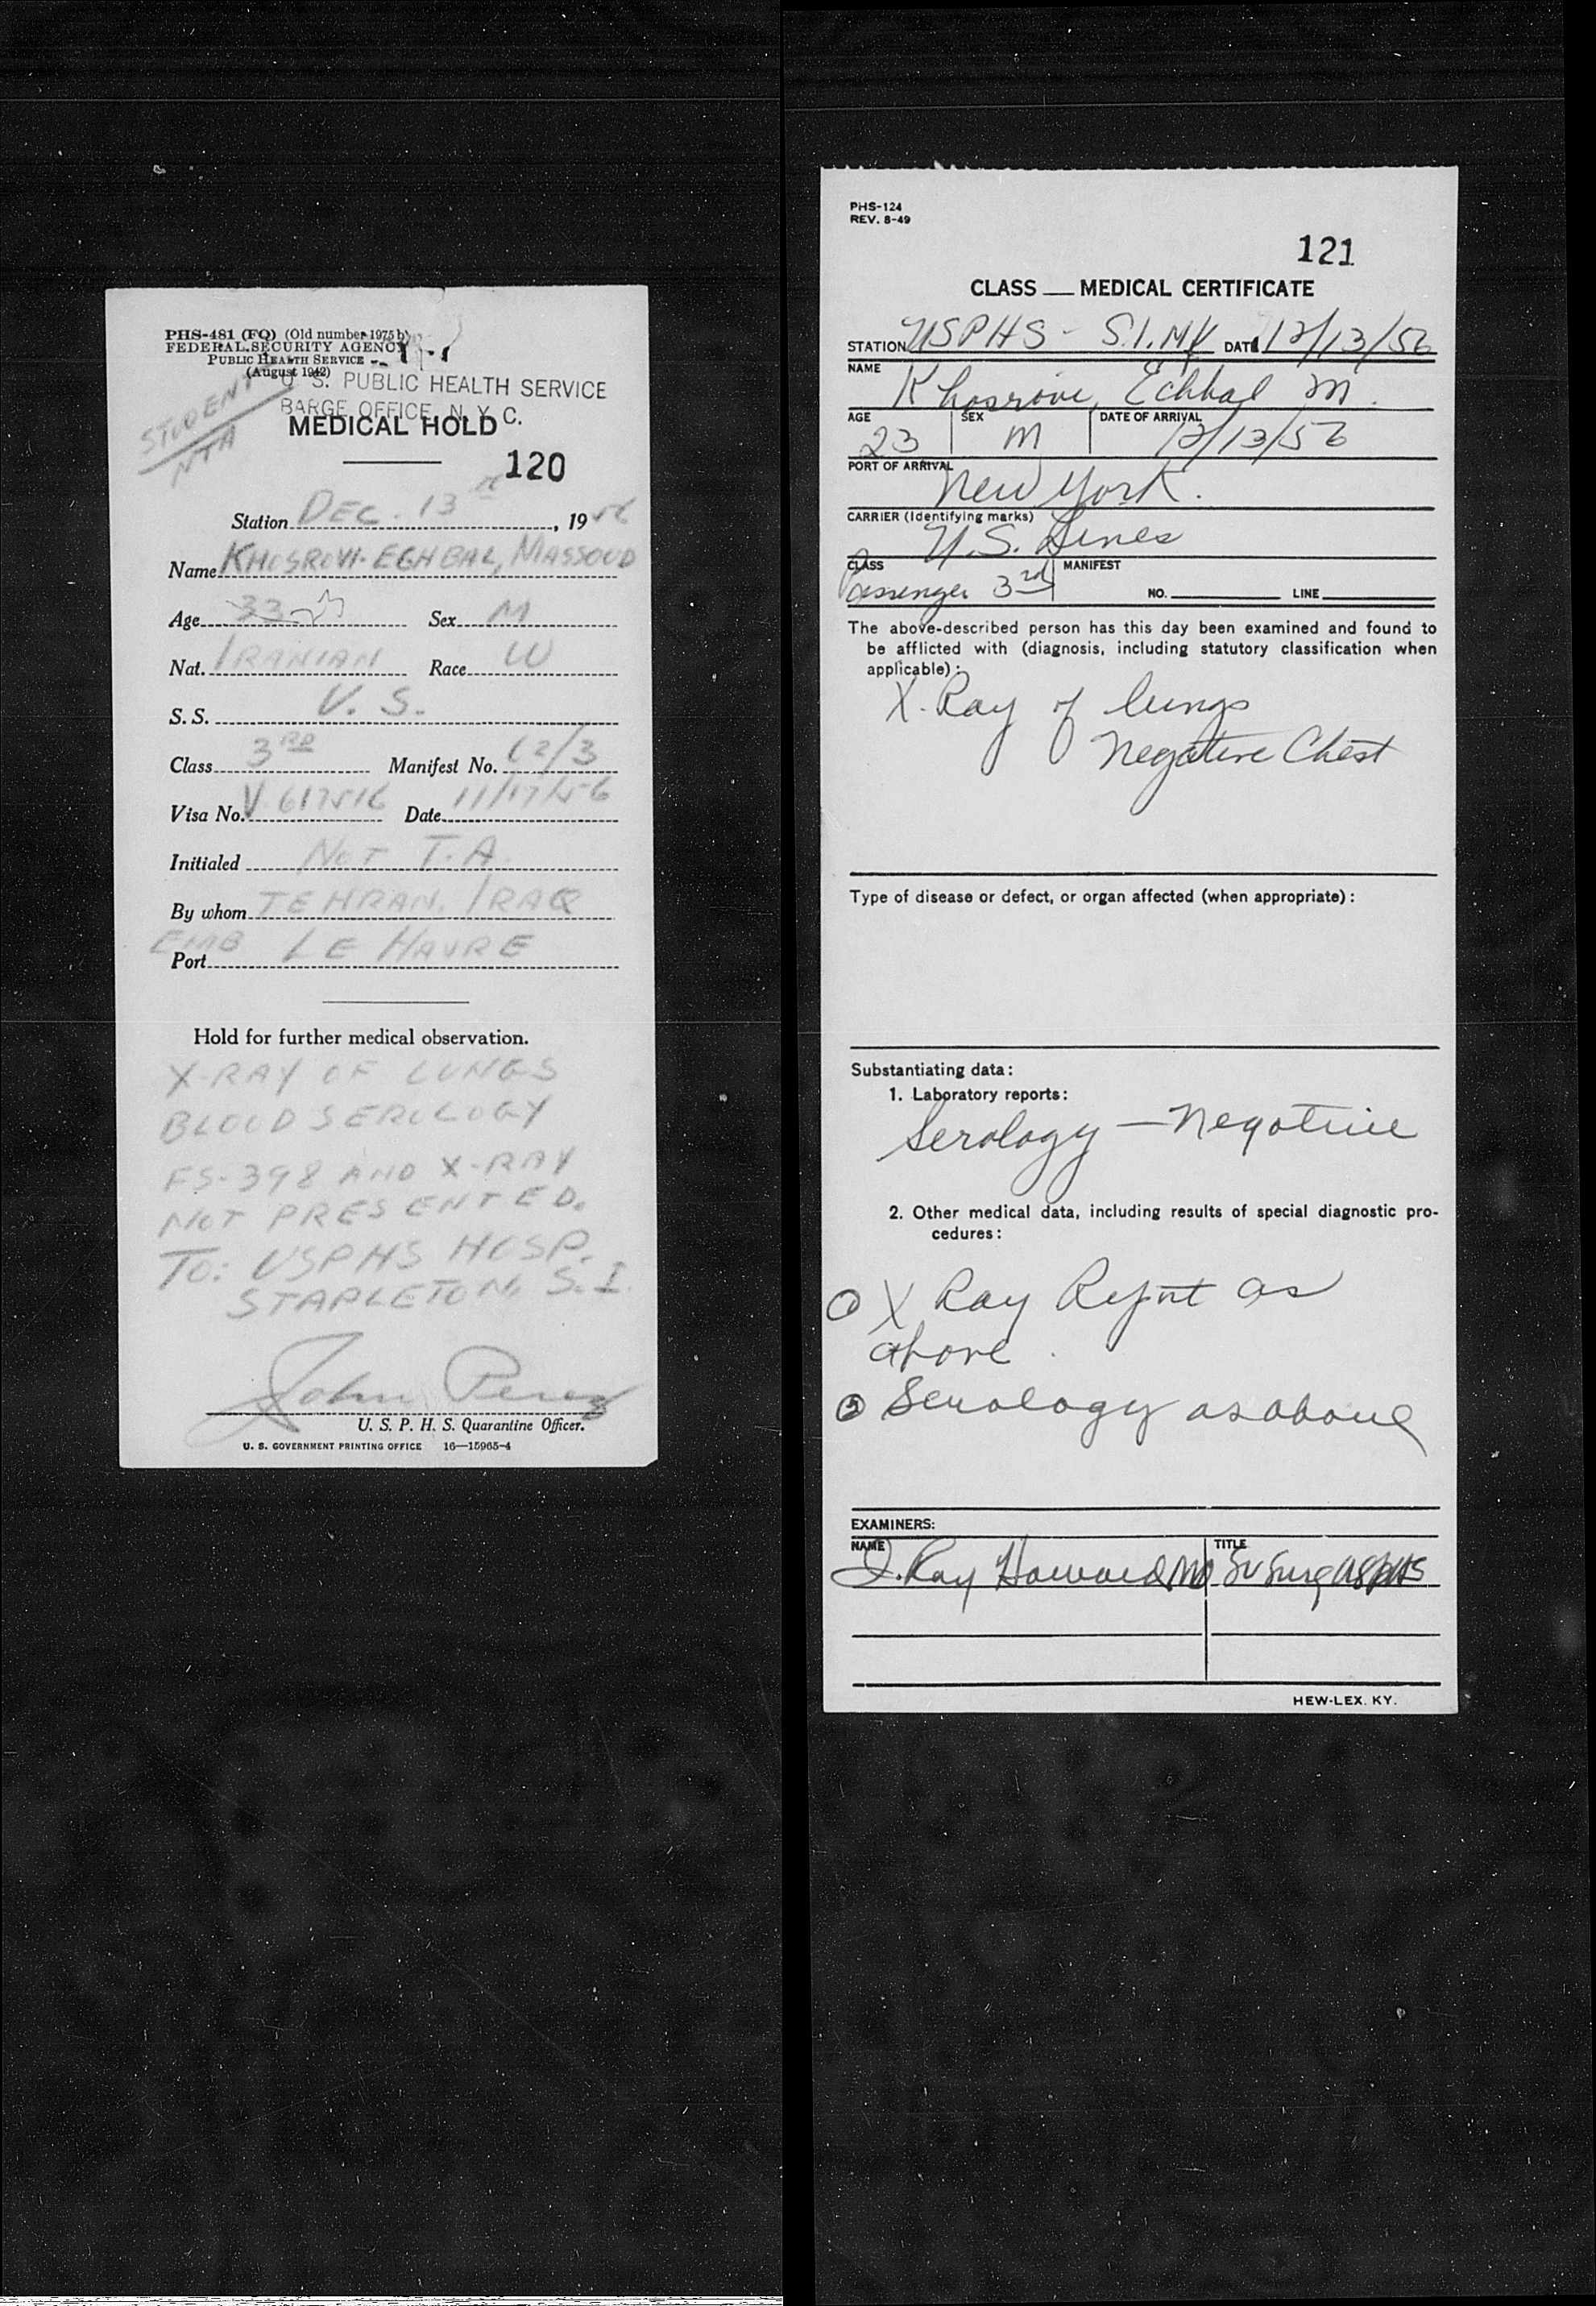 PHS-481 (FQ) (Old number 1975 b)
FEDERAL SECURITY AGENCY
PUBLIC HEALTH SERVICE
(August 1942)
U. S. PUBLIC HEALTH SERVICE
BARGE OFFICE, N. Y. C.
STUDENT
NTA
MEDICAL HOLD
120
Station DEC. 13 , 1956
Name KHOSROVI-EGHBAL, MASSOUD
Age 33 23 Sex M
Nat. IRANIAN Race W
S. S. U. S.
Class 3RD Manifest No. (2/3
Visa No. V 617516 Date 11/17/56
Initialed NOT T.A.
By whom TEHRAN, IRAQ
EMB
Port LE HAVRE
Hold for further medical observation.
X-RAY OF LUNGS
BLOOD SEROLOGY
FS-398 AND X-RAY
NOT PRESENTED.
TO: USPHS HOSP.
STAPLETON, S.I.
John Perez
U. S. P. H. S. Quarantine Officer.
U. S. GOVERNMENT PRINTING OFFICE 16—15965-4
PHS-124
REV. 8-49
121
CLASS MEDICAL CERTIFICATE
STATION USPHS - S.I. NY DATE 12/13/56
NAME Khosrovi, Echbal M.
AGE 23 SEX M DATE OF ARRIVAL 12/13/56
PORT OF ARRIVAL New York.
CARRIER (Identifying marks) U.S. Lines
CLASS Passenger 3rd MANIFEST NO. LINE
The above-described person has this day been examined and found to
be afflicted with (diagnosis, including statutory classification when
applicable):
X-Ray of lungs
Negative Chest
Type of disease or defect, or organ affected (when appropriate):
Substantiating data:
1. Laboratory reports:
Serology — Negative
2. Other medical data, including results of special diagnostic pro-
cedures:
① X Ray Report as
above.
② Serology as above
EXAMINERS:
NAME J. Ray Howard MD TITLE Sr Surg USPHS
HEW-LEX. KY.